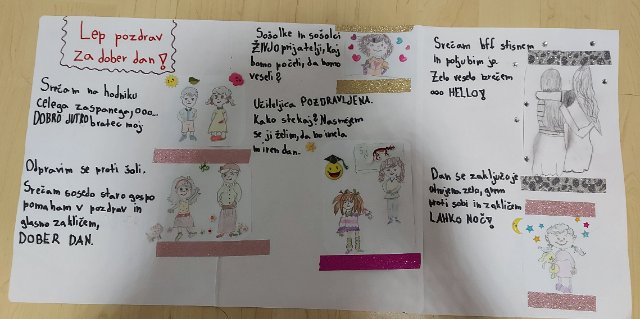 Lep pozdrav
za dober dan!
Srečam na hodniku
celega zaspanega, ooo...
DOBRO JUTRO bratec moj
Odpravim se proti šoli.
Srečam sosedo staro gospo
pomaham v pozdrav in
glasno zakličem,
DOBER DAN.
Sošolke in sošolci
ŽIVJO prijatelji, kaj
bomo počeli, da bomo
veseli?
Učiteljica POZDRAVLJENA.
Kako ste kaj? Nasmejem
se ji želim, da bo imela
miren dan.
Srečam bff stisnem
in poljubim jo
Zelo veselo rečem
ooo HELLO!
Dan se zaključuje
utrujena zelo, grem
proti sobi in zakličem
LAHKO NOČ!